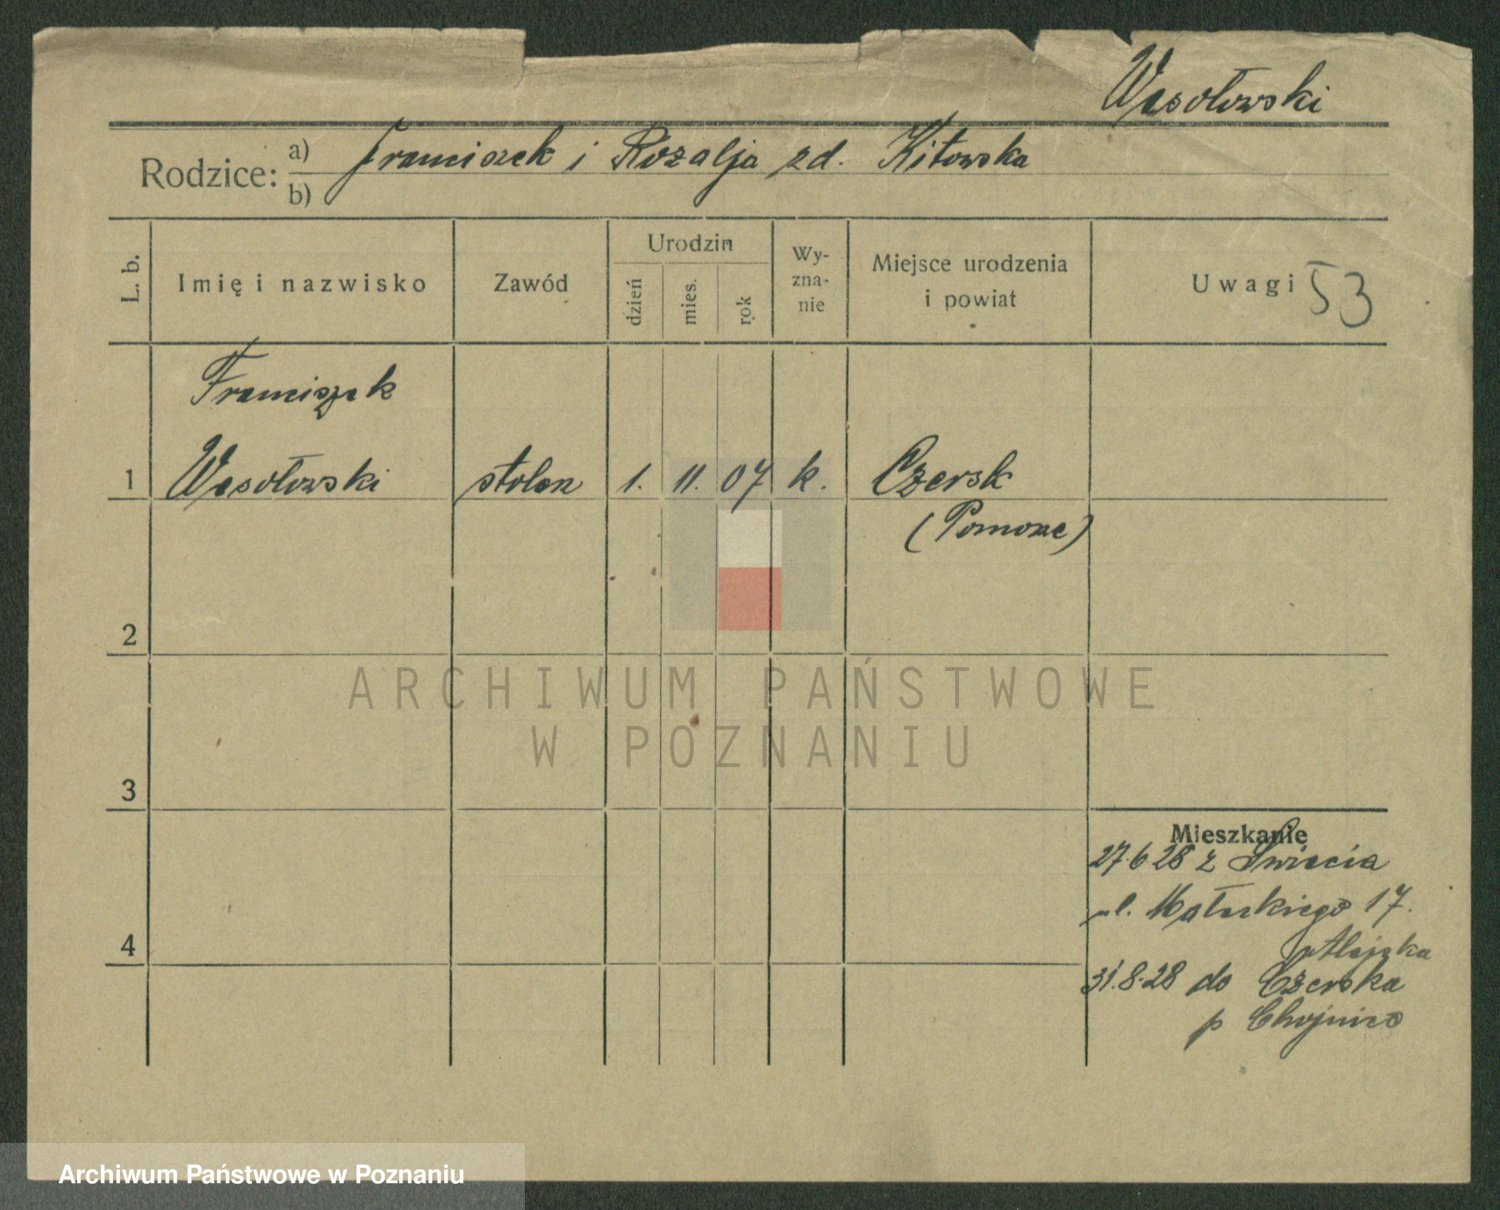 Wesołowski
Rodzice: a) Franciszek i Rozalja zd. Kitowska
b)
L. b.
Imię i nazwisko
Zawód
Urodzin
dzień
mies.
rok
Wy-
zna-
nie
Miejsce urodzenia
i powiat
Uwagi 53
Franciszek
1 Wesołowski stolarz 1. 11. 07 k. Czersk
(Pomorze)
2
3
4
Mieszkanie
27.6.28 z Świecia
ul. Małeckiego 17.
31.8.28 do Czerska
p Chojnice
ARCHIWUM PAŃSTWOWE
W POZNANIU
Archiwum Państwowe w Poznaniu